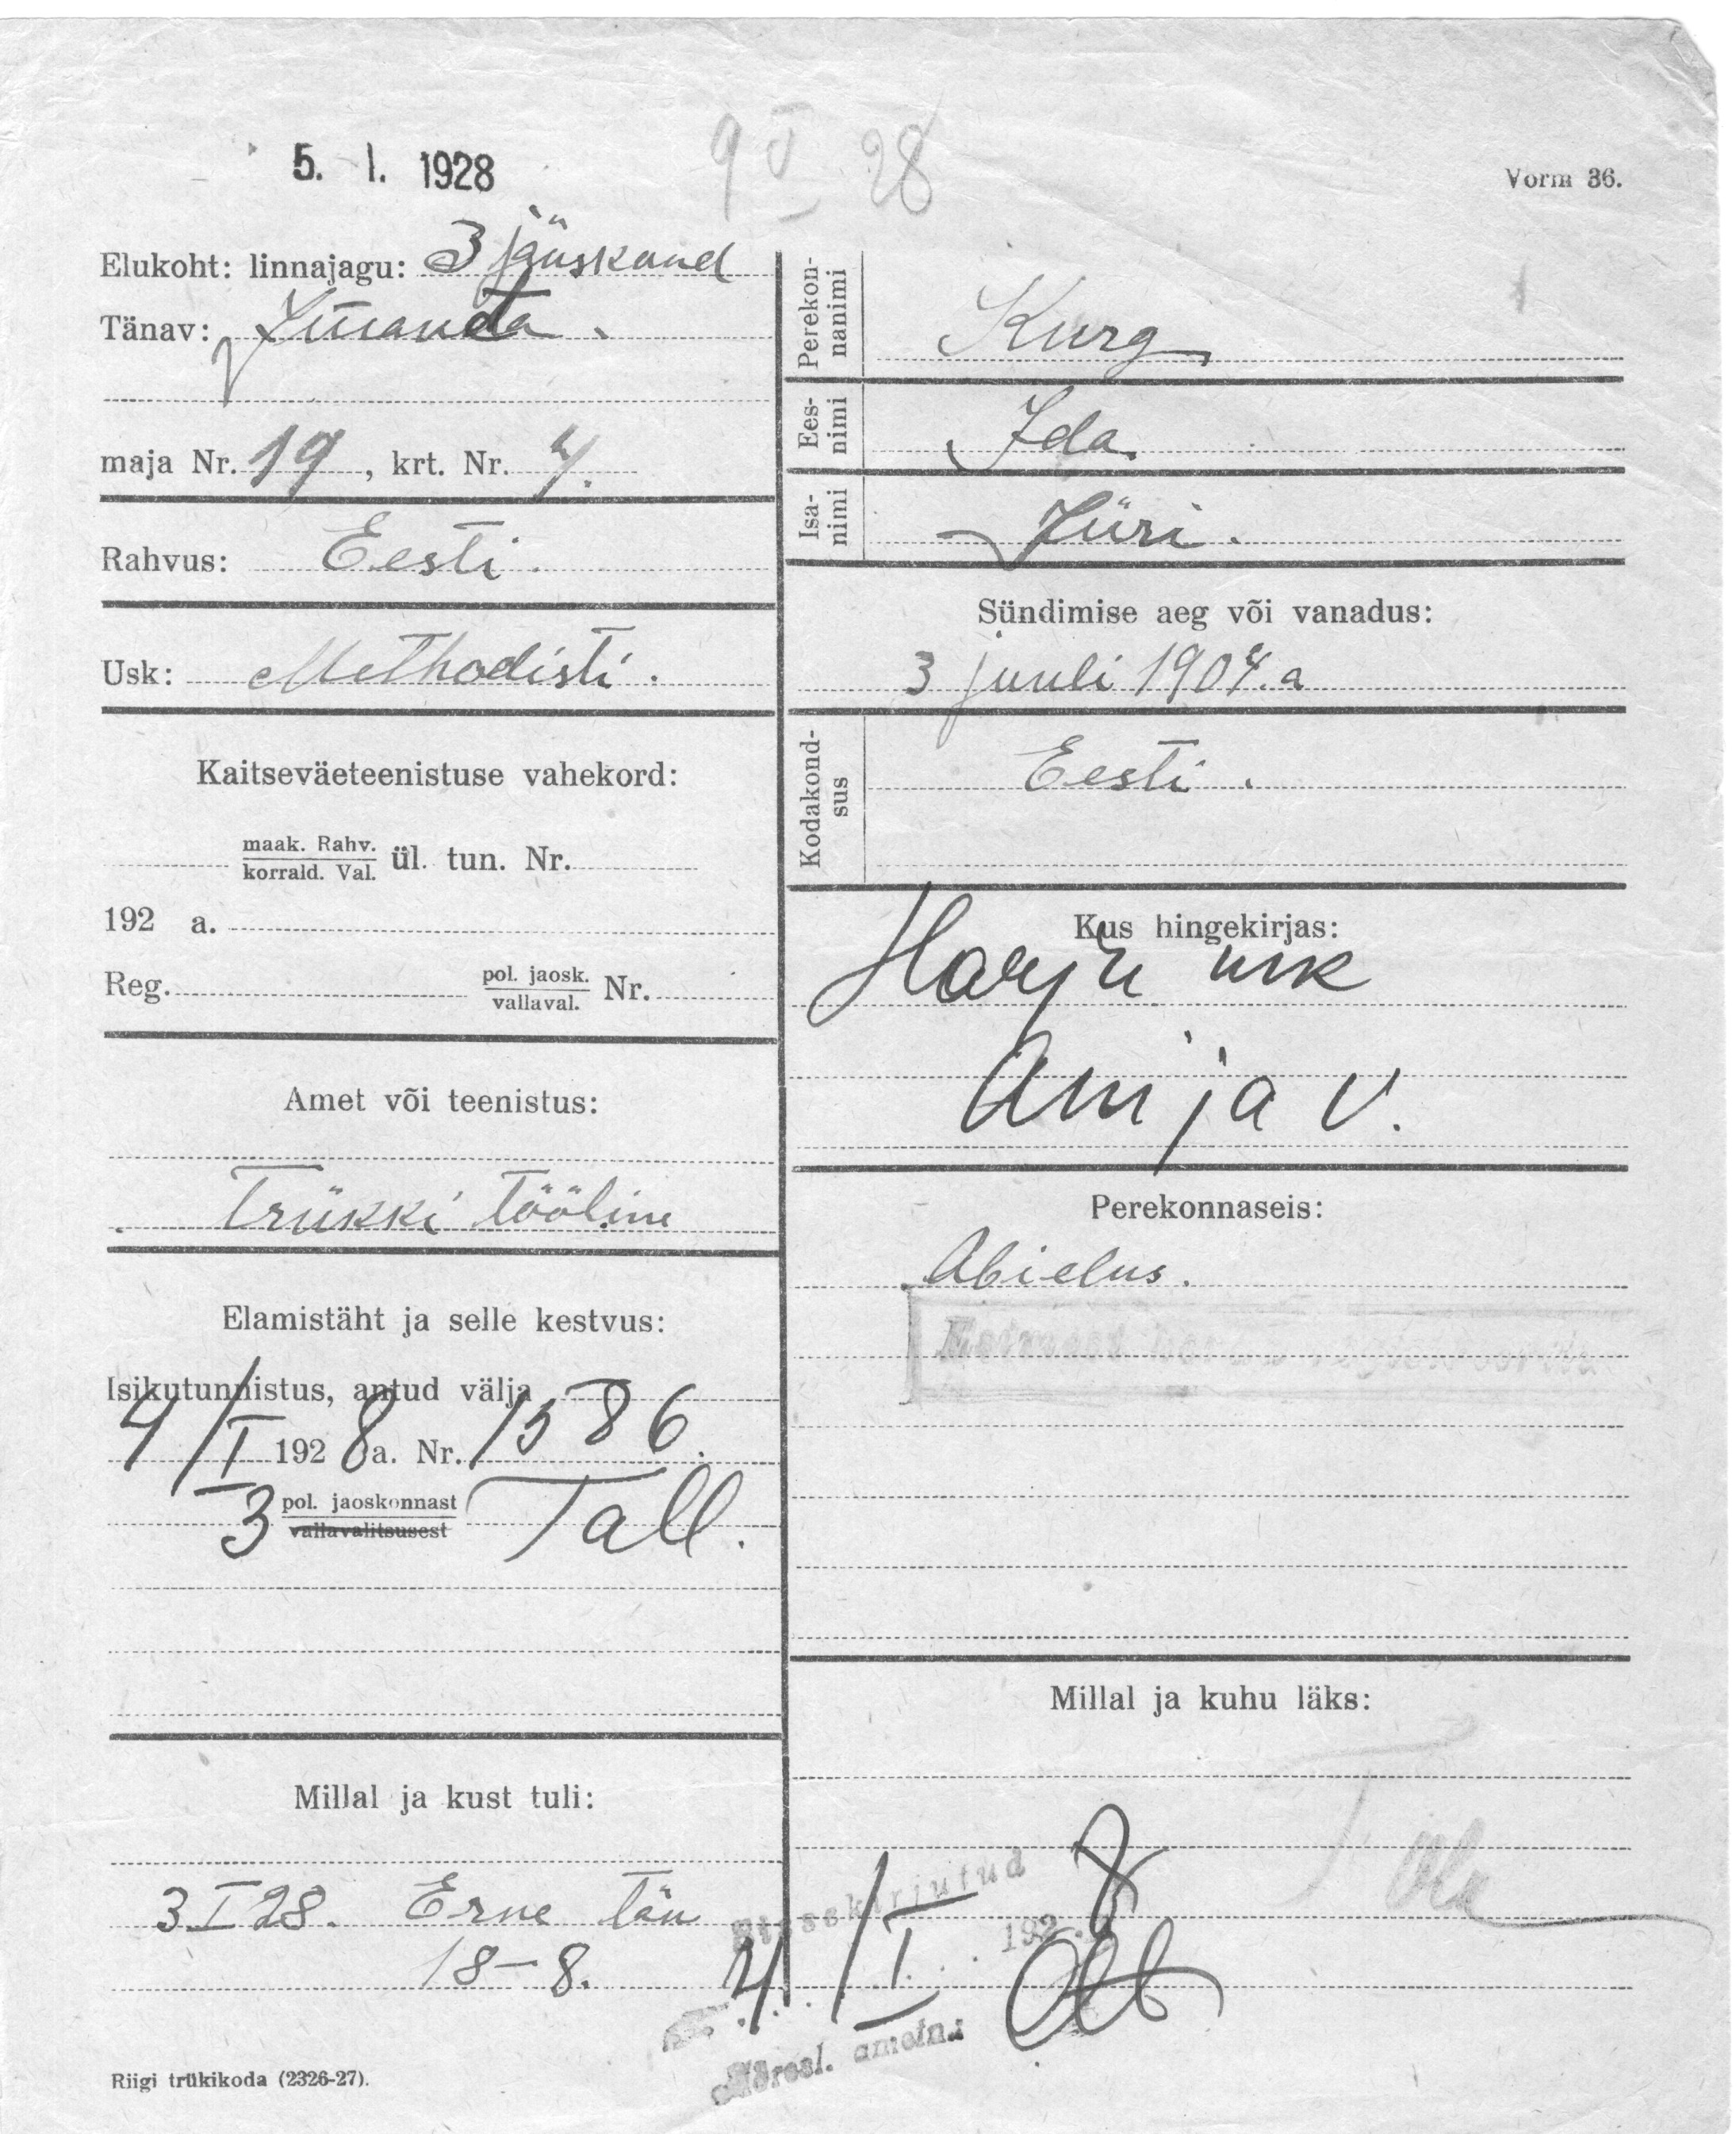 5. I. 1928
9 V 28
Vorm 36.
Elukoht: linnajagu: 3 jäoskond
Tänav: Imanta.
maja Nr. 19, krt. Nr. 4.
Rahvus: Eesti.
Usk: Methodisti.
Kaitseväeteenistuse vahekord:
maak. Rahv.
korrald. Val. ül. tun. Nr.
192 a.
Reg. pol. jaosk.
vallaval. Nr.
Amet või teenistus:
Trükki tööline
Elamistäht ja selle kestvus:
Isikutunnistus, antud välja
4/I 1928 a. Nr. 1586.
3 pol. jaoskonnast Tall.
vallavalitsusest
Millal ja kust tuli:
3 I 28. Erne tän
18-8.
Riigi trükikoda (2326-27).
Perekon-
nanimi
Kurg
Ees-
nimi
Ida.
Isa-
nimi
Jüri.
Sündimise aeg või vanadus:
3 juuli 1904. a
Kodakond-
sus
Eesti.
Kus hingekirjas:
Harju mk
Anija v.
Perekonnaseis:
Abielus.
Millal ja kuhu läks:
Sissekirjutud
4/I 1928
ametn.: